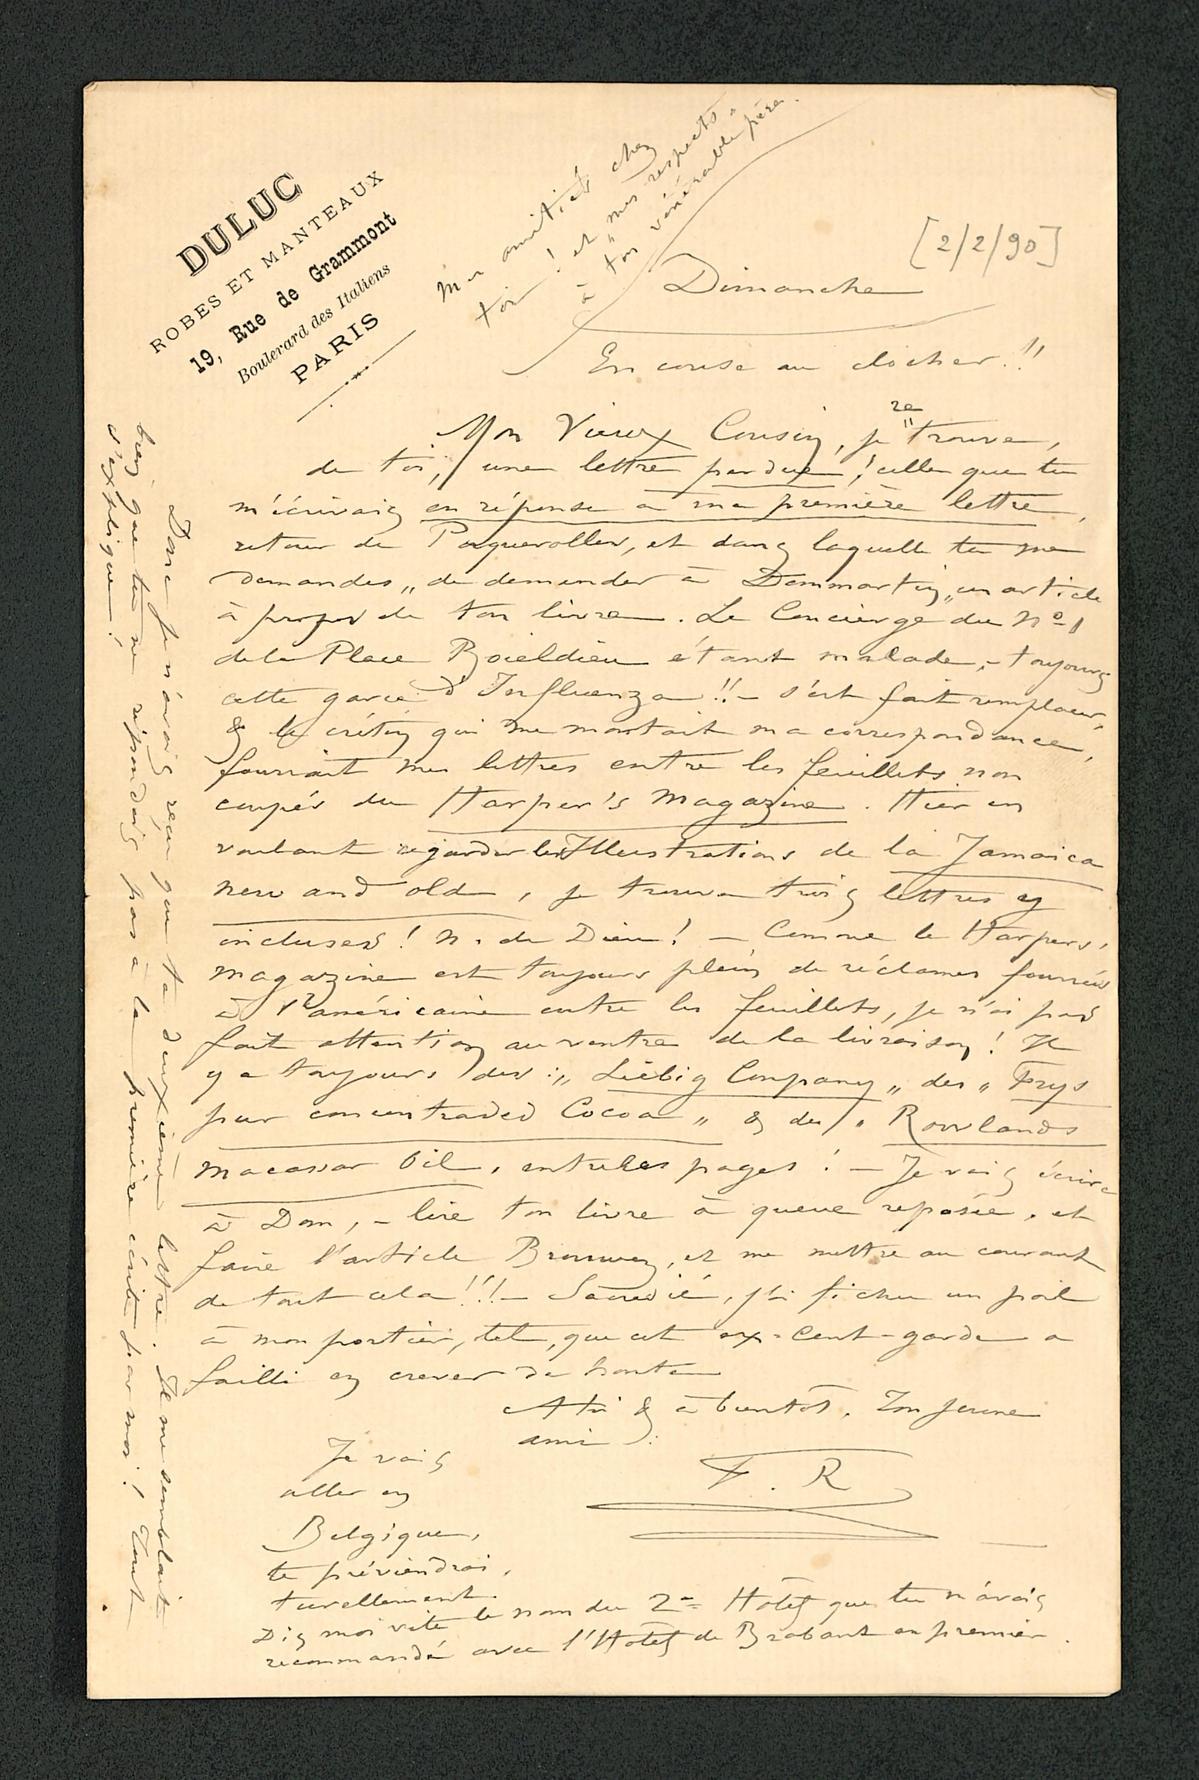 DULUC
ROBES ET MANTEAUX
19, Rue de Grammont
Boulevard des Italiens
PARIS
Mes amitiés chez
toi ! et mes respects
à ton vénérable père.
[2/2/90]
Dimanche
En course au clocher !!
Mon Vieux Cousin, je "re trouve,
de toi, une lettre perdue ! celle que tu
m'écrivais en réponse à ma première lettre,
retour de Porquerolles, et dans laquelle tu me
demandes „ de demander à Dommartin „ un article
à propos de ton livre. Le Concierge du No 1
de la Place Boieldieu étant malade, – toujours
cette garce d'Influenza !! – s'est fait remplacer,
& le crétin qui me montait ma correspondance,
fourrait mes lettres entre les feuillets non
coupés du Harper's Magazine. Hier en
voulant regarder les Illustrations de la Jamaica
new and old, je trouve trois lettres y
incluses ! N. de Dieu ! – Comme le Harpers,
magazine est toujours plein de réclames fourrées
à l'américaine entre les feuillets, je n'ai pas
fait attention au ventre de la livraison ! Il
y a toujours des : „ Liebig Company „ des „ Frys
pur concentraded Cocoa „ & des „ Rowlands
macassar Oil, entre les pages ! – Je vais écrire
à Dom, – lire ton livre à queue reposée, et
faire l'article Brouwez, et me mettre au courant
de tout cela !!! – Sacredié, j'ai fichu un poil
à mon portier, tel, que cet ex-cent-garde a
failli en crever de honte
A toi & à bientôt. Ton jeune
ami :
F. R
Je vais
aller en
Belgique,
te préviendrai,
turellement.
Dis moi vite le nom du 2e Hôtel que tu m'avais
recommandé avec l'Hôtel de Brabant en premier.
Donc je n'avais reçu que ta deuxième lettre. Il me semblait
bien que tu ne répondais pas à la première écrite par moi ! Tout
s'explique !